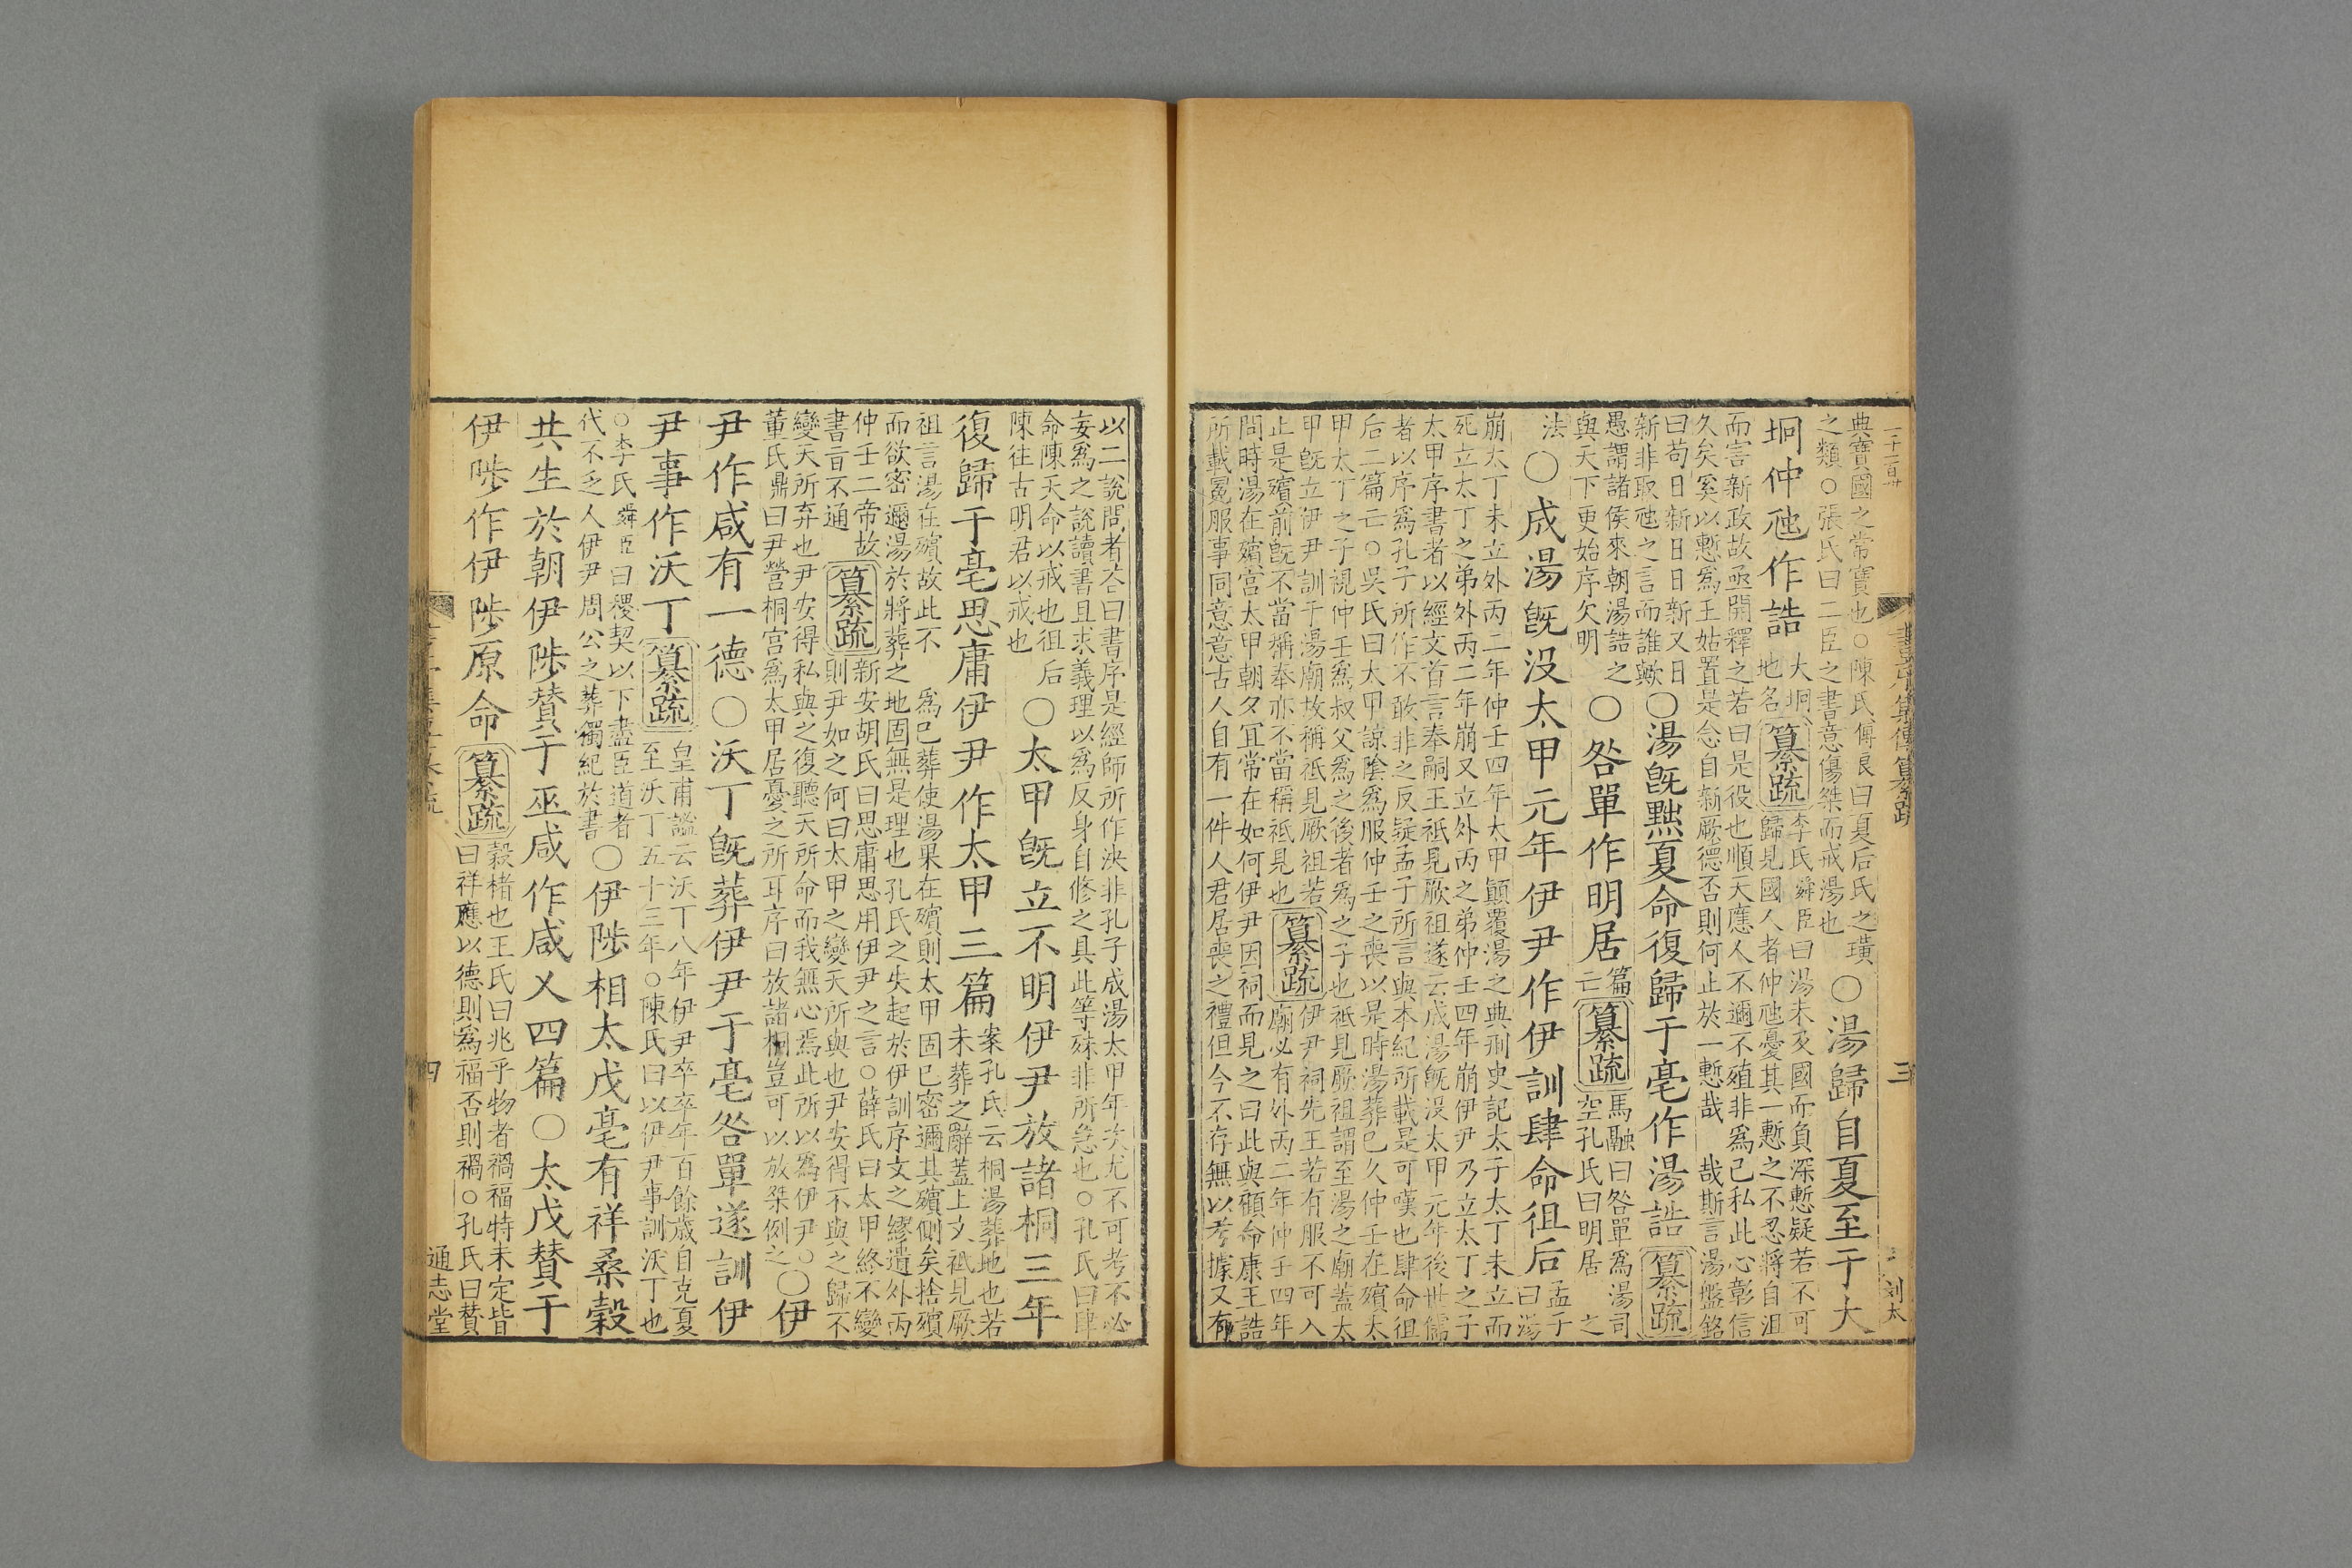 典寶國之常寶也○陳氏傅良曰夏后氏之璜
之類○張氏曰二臣之書意傷桀而戒湯也
○湯歸自夏至于大
坰仲虺作誥
大坰
地名
纂疏
李氏舜臣曰湯未及國而負深慙疑若不可
歸見國人者仲虺憂其一慙之不忍將自沮
而害新政故亟開釋之若曰是役也順天應人不邇不殖非爲己私此心彰信
久矣奚以慙爲王姑置是念自新厥德否則何止於一慙哉
哉斯言湯盤銘
曰苟日新日日新又日
新非取虺之言而誰歟
○湯旣黜夏命復歸于亳作湯誥
纂疏
愚謂諸侯來朝湯誥之
與天下更始序欠明
○咎單作明居
篇
亡
纂疏
馬融曰咎單爲湯司
空孔氏曰明居
之
法
○成湯旣没太甲元年伊尹作伊訓肆命徂后
孟子
曰湯
崩太丁未立外丙二年仲壬四年太甲顚覆湯之典刑史記太子太丁未立而
死立太丁之弟外丙二年崩又立外丙之弟仲壬四年崩伊尹乃立太丁之子
太甲序書者以經文首言奉嗣王祗見厥祖遂云成湯旣没太甲元年後世儒
者以序爲孔子所作不敢非之反疑孟子所言與本紀所載是可嘆也肆命徂
后二篇亡○吳氏曰太甲諒陰爲服仲壬之喪以是時湯葬已久仲壬在殯太
甲太丁之子視仲壬爲叔父爲之後者爲之子也祗見厥祖謂至湯之廟蓋太
甲旣立伊尹訓于湯廟故稱祗見厥祖若
止是殯前旣不當稱奉亦不當稱祗見也
纂疏
伊尹祠先王若有服不可入
廟必有外丙二年仲壬四年
問時湯在殯宮太甲朝夕冝常在如何伊尹因祠而見之曰此與顧命康王誥
所載冕服事同意意古人自有一件人君居喪之禮但今不存無以考據又有
書蔡氏集傳纂疏
三
刘太
以二說問者答曰書序是經師所作決非孔子成湯太甲年次尤不可考不必
妄爲之說讀書且求義理以爲反身自修之具此等殊非所急也○孔氏曰肆
命陳天命以戒也徂后
陳往古明君以戒也
○太甲旣立不明伊尹放諸桐三年
復歸于亳思庸伊尹作太甲三篇
案孔氏云桐湯葬地也若
未葬之辭蓋上文祗見厥
祖言湯在殯故此不
爲已葬使湯果在殯則太甲固已密邇其殯側矣捨殯
而欲密邇湯於將葬之地固無是理也孔氏之失起於伊訓序文之繆遺外丙
仲壬二帝故
書旨不通
纂疏
新安胡氏曰思庸思用伊尹之言○薛氏曰太甲終不變
則尹如之何曰太甲之變天所與也尹安得不與之歸不
變天所弃也尹安得私與之復聽天所命而我無心焉此所以爲伊尹○
董氏鼎曰尹營桐宮爲太甲居憂之所耳序曰放諸桐豈可以放桀例之
○伊
尹作咸有一德○沃丁旣葬伊尹于亳咎單遂訓伊
尹事作沃丁
纂疏
皇甫謐云沃丁八年伊尹卒卒年百餘歲自克夏
至沃丁五十三年○陳氏曰以伊尹事訓沃丁也
○李氏舜臣曰稷契以下盡臣道者
代不乏人伊尹周公之葬獨紀於書
○伊陟相太戊亳有祥桑榖
共生於朝伊陟贊于巫咸作咸乂四篇○太戊贊于
伊陟作伊陟原命
纂疏
榖楮也王氏曰兆乎物者禍福特未定皆
曰祥應以德則爲福否則禍○孔氏曰贊
四
通志堂